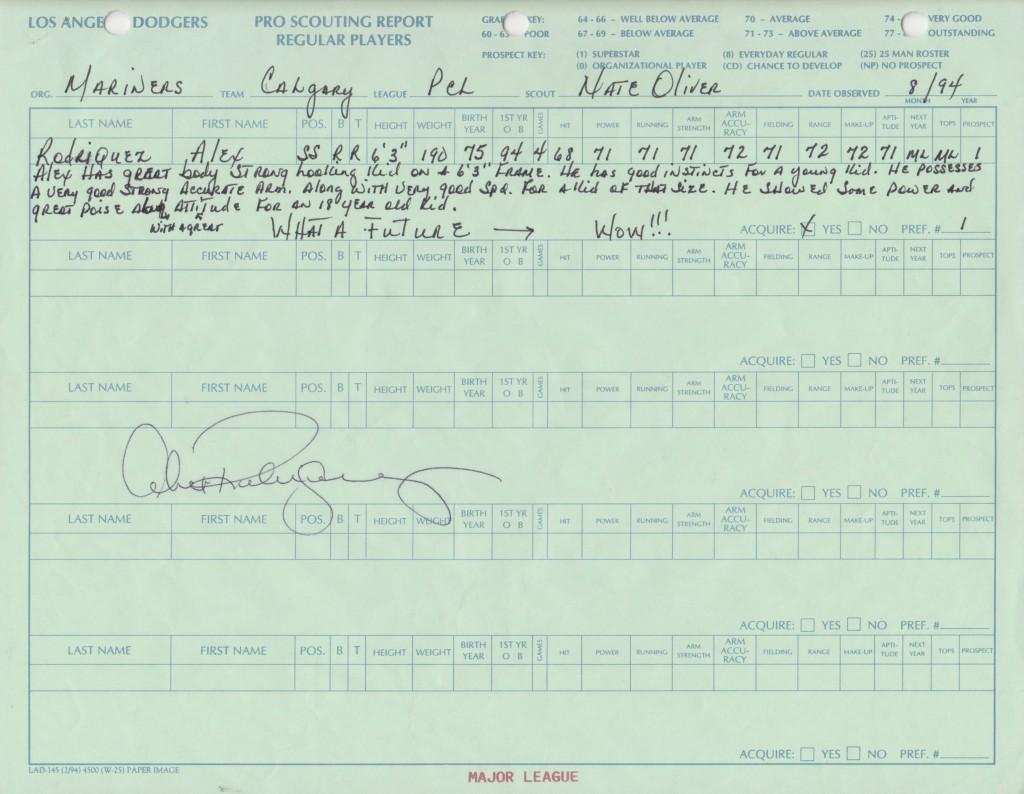 LOS ANGE DODGERS PRO SCOUTING REPORT GRA KEY: 64 - 66 - WELL BELOW AVERAGE 70 - AVERAGE 74 - VERY GOOD
REGULAR PLAYERS 60 - 63 POOR 67 - 69 - BELOW AVERAGE 71 - 73 - ABOVE AVERAGE 77 - OUTSTANDING
PROSPECT KEY: (1) SUPERSTAR (8) EVERYDAY REGULAR (25) 25 MAN ROSTER
(0) ORGANIZATIONAL PLAYER (CD) CHANCE TO DEVELOP (NP) NO PROSPECT
ORG. MARINERS TEAM CALgARy LEAGUE PCL SCOUT NATE OliVER DATE OBSERVED 8/94
MONTH YEAR
LAST NAME FIRST NAME POS. B T HEIGHT WEIGHT BIRTH YEAR 1ST YR O B GAMES HIT POWER RUNNING ARM STRENGTH ARM ACCU-RACY FIELDING RANGE MAKE-UP APTI-TUDE NEXT YEAR TOPS PROSPECT
RodRiQuEZ AlEX SS R R 6'3" 190 75 94 4 68 71 71 71 72 71 72 72 71 ML ML 1
AlEX HAS gREAT body STRONg looking Kid ON A 6'3" FRAME. HE HAS good iNSTiNCTS FOR A young Kid. HE POSSESSES
A VERy good STRONg ACCURATE ARM. AloNg WiTH VERy good SPd. FOR A Kid oF THAT SizE. HE SHowEd SomE PowER ANd
gREAT PoiSE WiTH A gREAT ATTiTudE FoR AN 18 yEAR old Kid.
WHAT A FuTuRE → Wow!!! ACQUIRE: X YES NO PREF. # 1
LAST NAME FIRST NAME POS. B T HEIGHT WEIGHT BIRTH YEAR 1ST YR O B GAMES HIT POWER RUNNING ARM STRENGTH ARM ACCU-RACY FIELDING RANGE MAKE-UP APTI-TUDE NEXT YEAR TOPS PROSPECT
ACQUIRE: YES NO PREF. #
LAST NAME FIRST NAME POS. B T HEIGHT WEIGHT BIRTH YEAR 1ST YR O B GAMES HIT POWER RUNNING ARM STRENGTH ARM ACCU-RACY FIELDING RANGE MAKE-UP APTI-TUDE NEXT YEAR TOPS PROSPECT
ACQUIRE: YES NO PREF. #
LAST NAME FIRST NAME POS. B T HEIGHT WEIGHT BIRTH YEAR 1ST YR O B GAMES HIT POWER RUNNING ARM STRENGTH ARM ACCU-RACY FIELDING RANGE MAKE-UP APTI-TUDE NEXT YEAR TOPS PROSPECT
ACQUIRE: YES NO PREF. #
LAST NAME FIRST NAME POS. B T HEIGHT WEIGHT BIRTH YEAR 1ST YR O B GAMES HIT POWER RUNNING ARM STRENGTH ARM ACCU-RACY FIELDING RANGE MAKE-UP APTI-TUDE NEXT YEAR TOPS PROSPECT
ACQUIRE: YES NO PREF. #
LAD-145 (2/94) 4500 (W-25) PAPER IMAGE
MAJOR LEAGUE